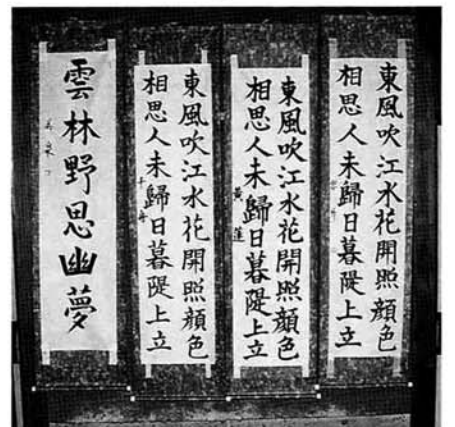 東風吹江水花開照顔色
相思人未歸日暮隄上立
東風吹江水花開照顔色
相思人未歸日暮隄上立
黄蓮
東風吹江水花開照顔色
相思人未歸日暮隄上立
雲林野思幽夢